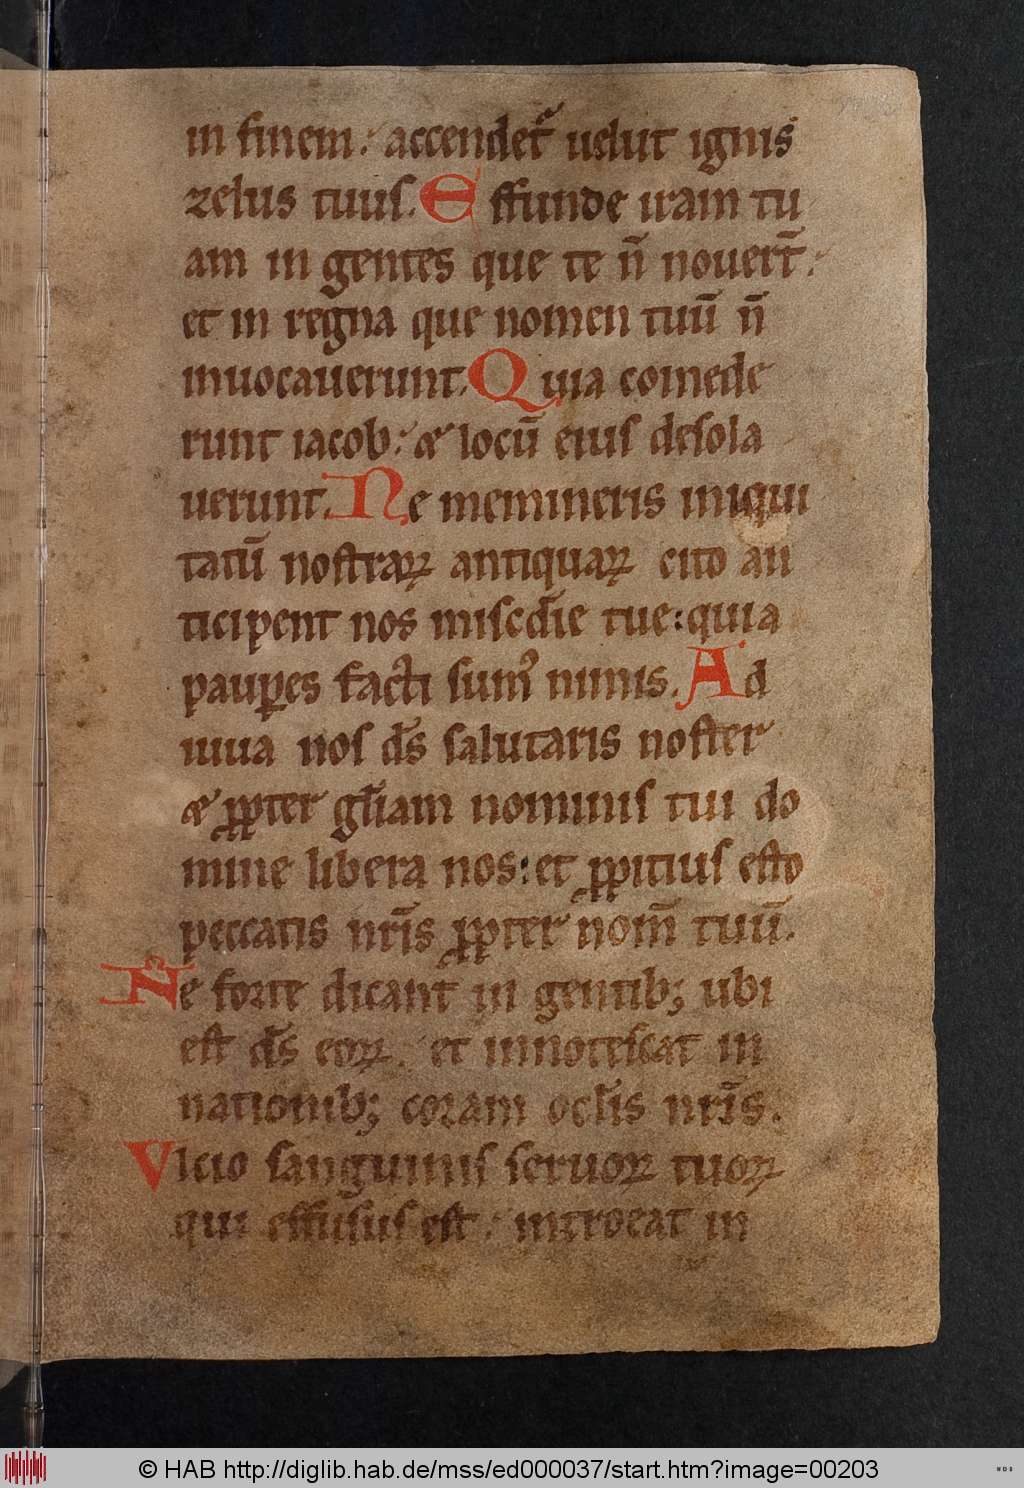 in finem: accendet᷑ uelut ignis
zelus tuus. Effunde iram tu
am in gentes que te n̄ nouert̄:
et in regna que nomen tuū n̄
inuocauerunt. Quia comede
runt iacob: & locū eius desola
uerunt. Ne memineris iniqui
tatū nostraꝝ antiquaꝝ cito an
ticipent nos misc̄die tue: quia
paup̄es facti sumꝰ nimis. Ad
iuua nos d̄s salutaris noster
& ꝓpter gl̄iam nominis tui do
mine libera nos: et ꝓpitius esto
peccatis nr̄is ꝓpter nom̄ tuū.
Ne forte dicant in gentib; ubi
est d̄s eoꝝ. et innotescat in
nationib; coram ocl̄is nr̄is.
Vlcio sanguinis seruoꝝ tuoꝝ
qui effusus est: introeat in
© HAB http://diglib.hab.de/mss/ed000037/start.htm?image=00203